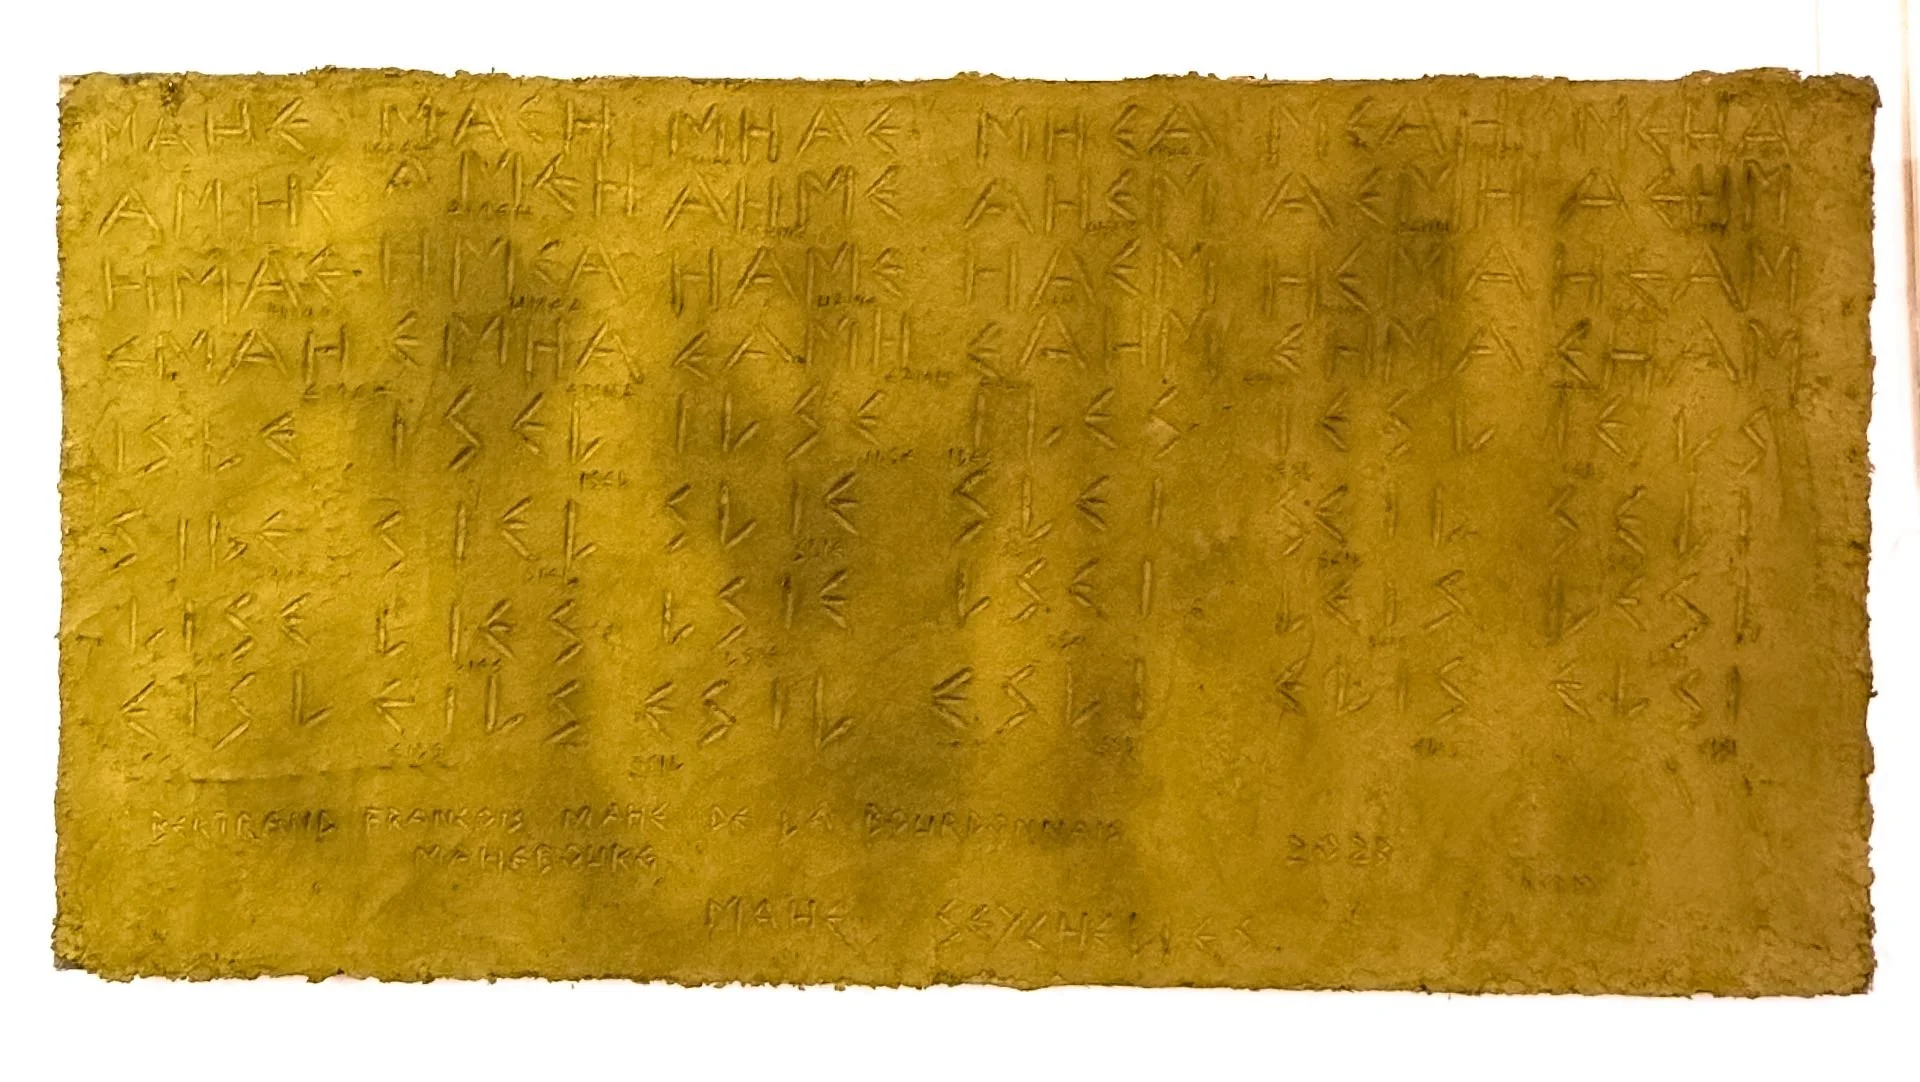 MAHE MAEH MHAE MHEA MEAH MEHA
AMHE AMEH AHME AHEM AEMH AEHM
HMAE HMEA HAME HAEM HEMA HEAM
EMAH EMHA EAMH EAHM EHMA EHAM
ISLE ISEL ILSE ILES IESL IELS
SILE SIEL SLIE SLEI SEIL SELI
LISE LIES LSIE LSEI LEIS LESI
EISL EILS ESIL ESLI ELIS ELSI
BERTRAND FRANCOIS MAHE DE LA BOURDONNAIS
MAHEBOURG 2023
MAHE SEYCHELLES